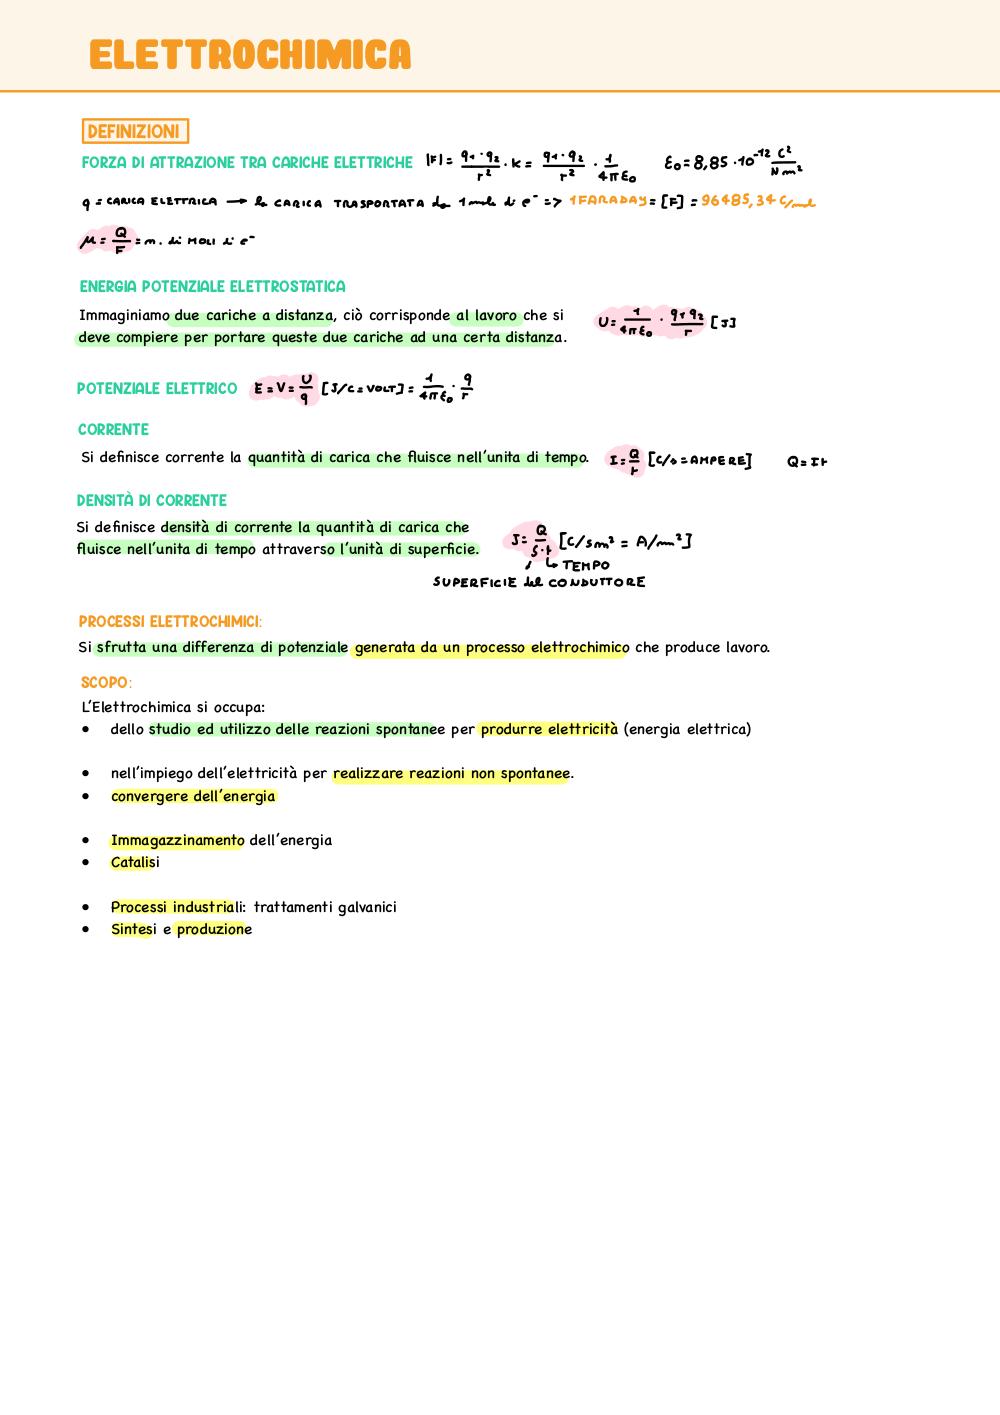 ELETTROCHIMICA
DEFINIZIONI
FORZA DI ATTRAZIONE TRA CARICHE ELETTRICHE |F| = q1·q2/r² · K = q1·q2/r² · 1/4πε0 ε0 = 8,85 · 10⁻¹² C²/Nm²
q = CARICA ELETTRICA → la CARICA TRASPORTATA da 1 mole di e⁻ => 1 FARADAY = [F] = 96485,34 C/mol
μ = Q/F = n. di MOLI di e⁻
ENERGIA POTENZIALE ELETTROSTATICA
Immaginiamo due cariche a distanza, ciò corrisponde al lavoro che si U = 1/4πε0 · q1q2/r [J]
deve compiere per portare queste due cariche ad una certa distanza.
POTENZIALE ELETTRICO E = V = U/q [J/C = VOLT] = 1/4πε0 · q/r
CORRENTE
Si definisce corrente la quantità di carica che fluisce nell'unita di tempo. I = Q/t [C/s = AMPERE] Q = It
DENSITÀ DI CORRENTE
Si definisce densità di corrente la quantità di carica che
fluisce nell'unita di tempo attraverso l'unità di superficie. J = Q/S·t [C/sm² = A/m²]
↳ TEMPO
SUPERFICIE del CONDUTTORE
PROCESSI ELETTROCHIMICI:
Si sfrutta una differenza di potenziale generata da un processo elettrochimico che produce lavoro.
SCOPO:
L'Elettrochimica si occupa:
• dello studio ed utilizzo delle reazioni spontanee per produrre elettricità (energia elettrica)
• nell'impiego dell'elettricità per realizzare reazioni non spontanee.
• convergere dell'energia
• Immagazzinamento dell'energia
• Catalisi
• Processi industriali: trattamenti galvanici
• Sintesi e produzione